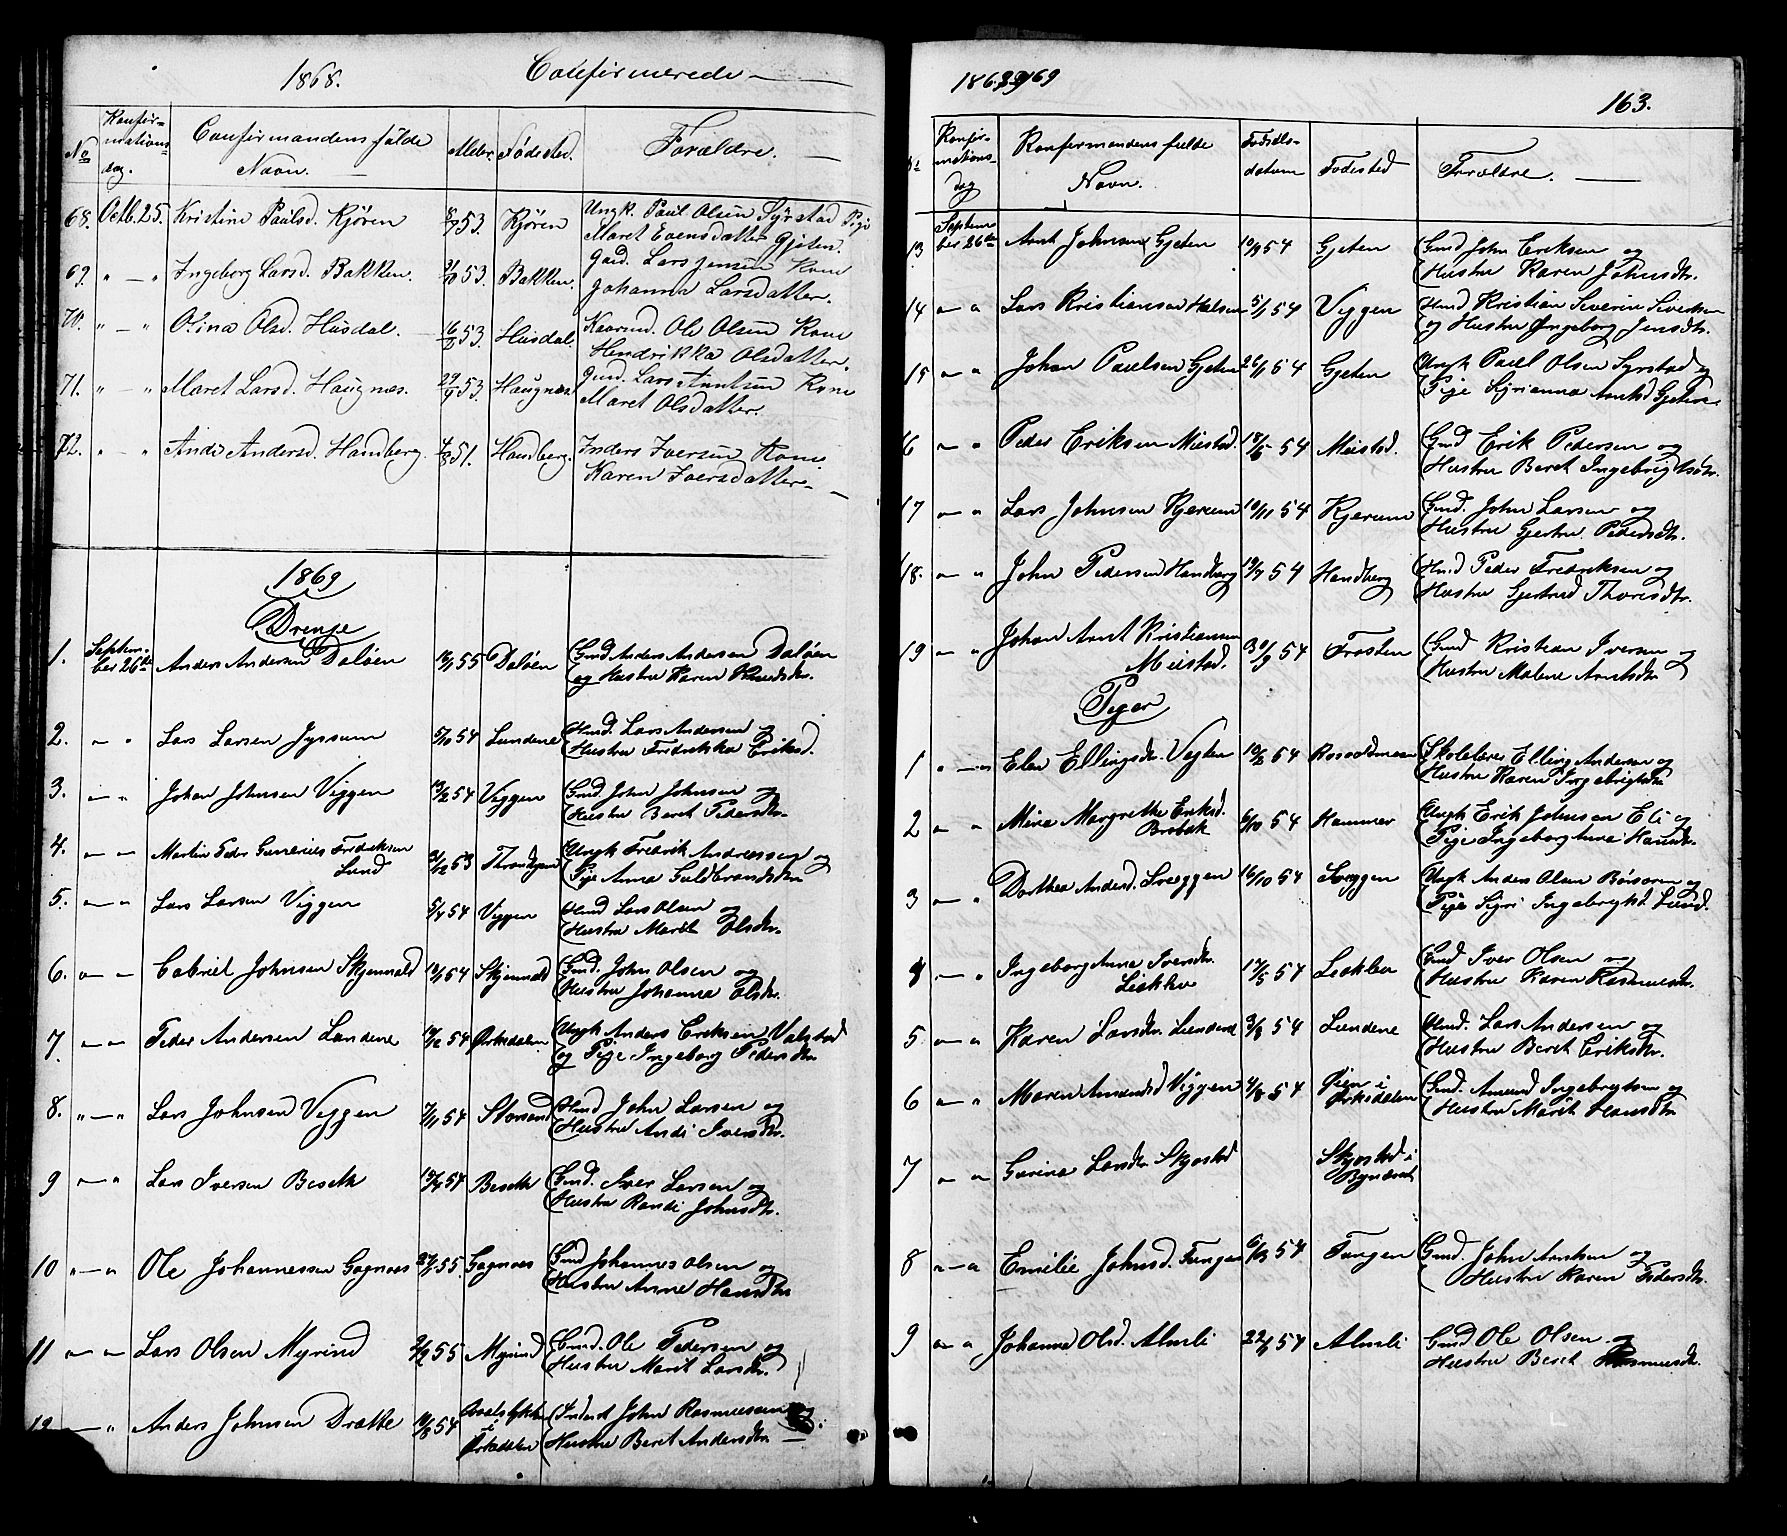 1868. Confirmerede
No Konfirmationsdag. Confirmandens fulde Navn. Alder. Fødested. Forældre.
68. Octb. 25. Kristine Paulsd. Kjøren 53. Kjøren Ungk. Paul Olsen Syrstad Pige
Maret Evensdatter Gjeten.
69. " — " Ingeborg Larsd. Bakken. 53. Bakken. Gaard. Lars Jensen Kone
Johanna Larsdatter.
70. " — " Olina Olsd. Husdal. 53. Husdal. Ole Olsen Kone
Hendrikka Olsdatter.
71. " — " Maret Larsd. Haugnæs. 29/9 53. Haugnæs. Gmd. Lars Arntsen Kone
Maret Olsdatter.
72. " — " Andersd. Handberg. 51. Handberg. Inders Iversen Kone
Karen Iversdatter.
1869
Drenge
1. September 26de Anders Andersen Daløen 55 Daløen Gmd Anders Andersen Daløen
og Hustru Karen Knudsdtr.
2. " " Lars Larsen Jyssum 5/10 54 Lundene Hmd. Lars Andersen og
Hustru Fredrikka Eriksd.
3. " " Johan Johnsen Viggen 54 Viggen Gmd. John Johnsen og
Hustru Beret Pedersdtr.
4. " " Martin Peder Fredriksen
Lund 53 Throndhjem Ungk Fredrik Andreassen og
Pige Anna Guldbrandsdtr
5. " " Lars Larsen Viggen 54 Viggen Hmd Lars Olsen og
Hustru Marit Olsdtr.
6. " " Gabriel Johnsen Skjenald 54 Skjenald Gmd. John Olsen og
Hustru Johanna Olsdtr.
7. " " Peder Andersen Lundene 54 Ørkedalen Ungk Anders Eriksen Valstad
og Pige Ingeborg Pedersdtr
8. " — " Lars Johnsen Viggen 7/11 54 Storsand Hmd John Larsen og
Hustru Andi Iversdtr.
9 " — " Lars Iversen Beseth 54 Beseth Gmd. Iver Larsen og
Hustru Randi Johnsdtr.
10 " — " Ole Johannessen Gagnæs 55. Gagnæs Gmd Johannes Olsen og
Hustru Anne Hansdtr
11 " — " Lars Olsen Myrind 55 Myrind Gmd. Ole Pedersen og
Hustru Marit Larsdtr.
12 — " Anders Johnsen Drætte 54 i Ørkedalen Inderst John Rasmussen og
Hustru Beret Andersdtr
1869
163.
Konfirmationsdag Konfirmandens fulde Navn. Fødselsdatum Fødested Forældre.
13 September 26de Arnt Johnsen Gjeten 10/9 54 Gjeten Gmd John Eriksen og
Hustru Karen Johnsdtr.
14 " " Lars Kristiansen Halsen 5/1 54 Viggen Hmd Kristian Severin Sivertsen
og Hustru Ingeborg Jensdtr.
15 " " Johan Paulsen Gjeten 26/1 54 Gjeten Ungk Paul Olsen Syrstad og
Pige Kjrianna Arntsd Gjeten
16 " " Peder Eriksen Miistad. 54 Miistad. Gmd Erik Pedersen og
Hustru Beret Ingebrigtsdtr.
17 " " Lars Johnsen Kjerum 10/11 54 Kjerum Gmd. John Larsen og
Hustru Gjertru Pedersdtr.
18. " " John Pedersen Handberg 54 Handberg Hmd Peder Fredriksen og
Hustru Gjertrud Thoresdtr.
19 " " Johan Arnt Kristiansen
Miistad. 30/9 54 Frosten Gmd Kristian Iversen og
Hustru Malene Arntsdtr
Piger
1 " — " Elen Ellingsdtr. Vegten 54 Skolelærer Elling Andersen og
Hustru Karen Ingebrigtsdtr
2 " " Mina Margrethe Eriksd.
Brobak 6/10 54 Hammer Ungk Erik Johnsen Eli og
Pige Ingeborg Anna Hansdtr.
3 " " Dorthea Andersd. Sveggen 16/10 54 Sveggen Ungk Anders Olsen Børsøren og
Pige Sigri Ingebrigtsd Lund.
4 " " Ingeborg Anne Iversdtr.
Leikbo 17/5 54 Leikbo Gmd Iver Olsen og
Hustru Karen Rasmusdtr.
5 " " Karen Larsdtr. Lundene 3/8 54 Lundene Hmd. Lars Andersen og
Hustru Beret Eriksdtr.
6 " " Maren Amundsd Viggen 4/8 54 Øien i
Orkedalen Gmd. Amund Ingebrigtsen og
Hustru Marit Hansdtr
7 " " Gurina Larsdtr Skjøstad Skjøstad i
Bynæset
8 " " Emilie Johnsd. Tungen 54 Tungen Gmd. John Arntsen og
Hustru Karen Pedersdtr.
9 " " Johanna Olsd. Almli 54 Almli Gmd Ole Olsen og
Hustru Beret Rasmusdtr.